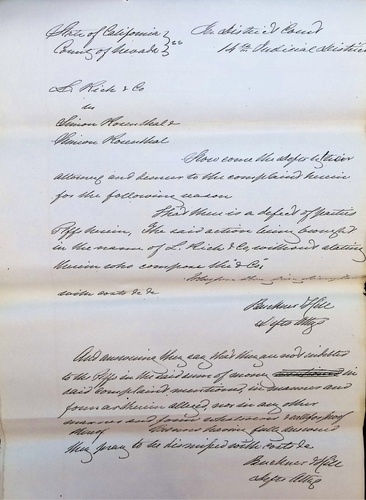 State of California } ss In District Court
County of Nevada } 14th Judicial District
L. Rich & Co
vs
Simon Rosenthal &
Rosenthal
Now come the defts by their
attorney and demur to the complaint herein
for the following reason
That there is a defect of parties
Plff herein, The said action being brought
in the name of L. Rich & Co, without stating
therein who compose the Co
with costs &c
Buckner & Hill
defts Attys
And answering they say that they are not indebted
to the Plffs in the said sum of money in
said complaint mentioned, in manner and
form as therein alleged, nor in any other
manner and form whatever & call for proof
having fully answered
they pray to be dismissed with costs &c
Buckner & Hill
defts Attys